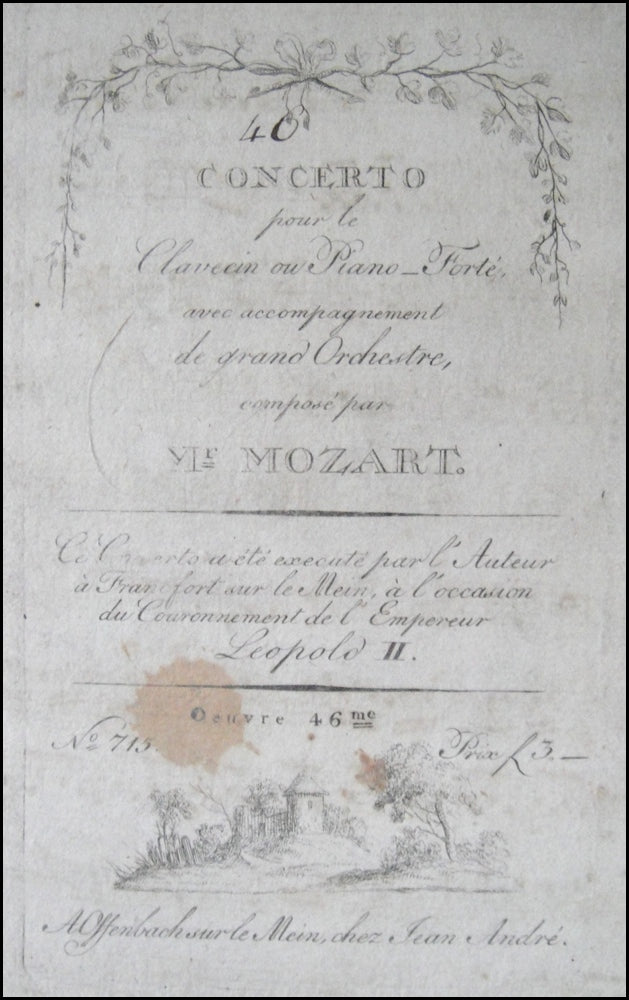 40
CONCERTO
pour le
Clavecin ou Piano-Forté,
avec accompagnement
de grand Orchestre,
composé par
Mr MOZART.
Ce Concerto a été executé par l'Auteur
à Francfort sur le Mein, à l'occasion
du Couronnement de l'Empereur
Leopold II.
Oeuvre 46me
No 715.
Prix f 3.—
A Offenbach sur le Mein, chez Jean André.